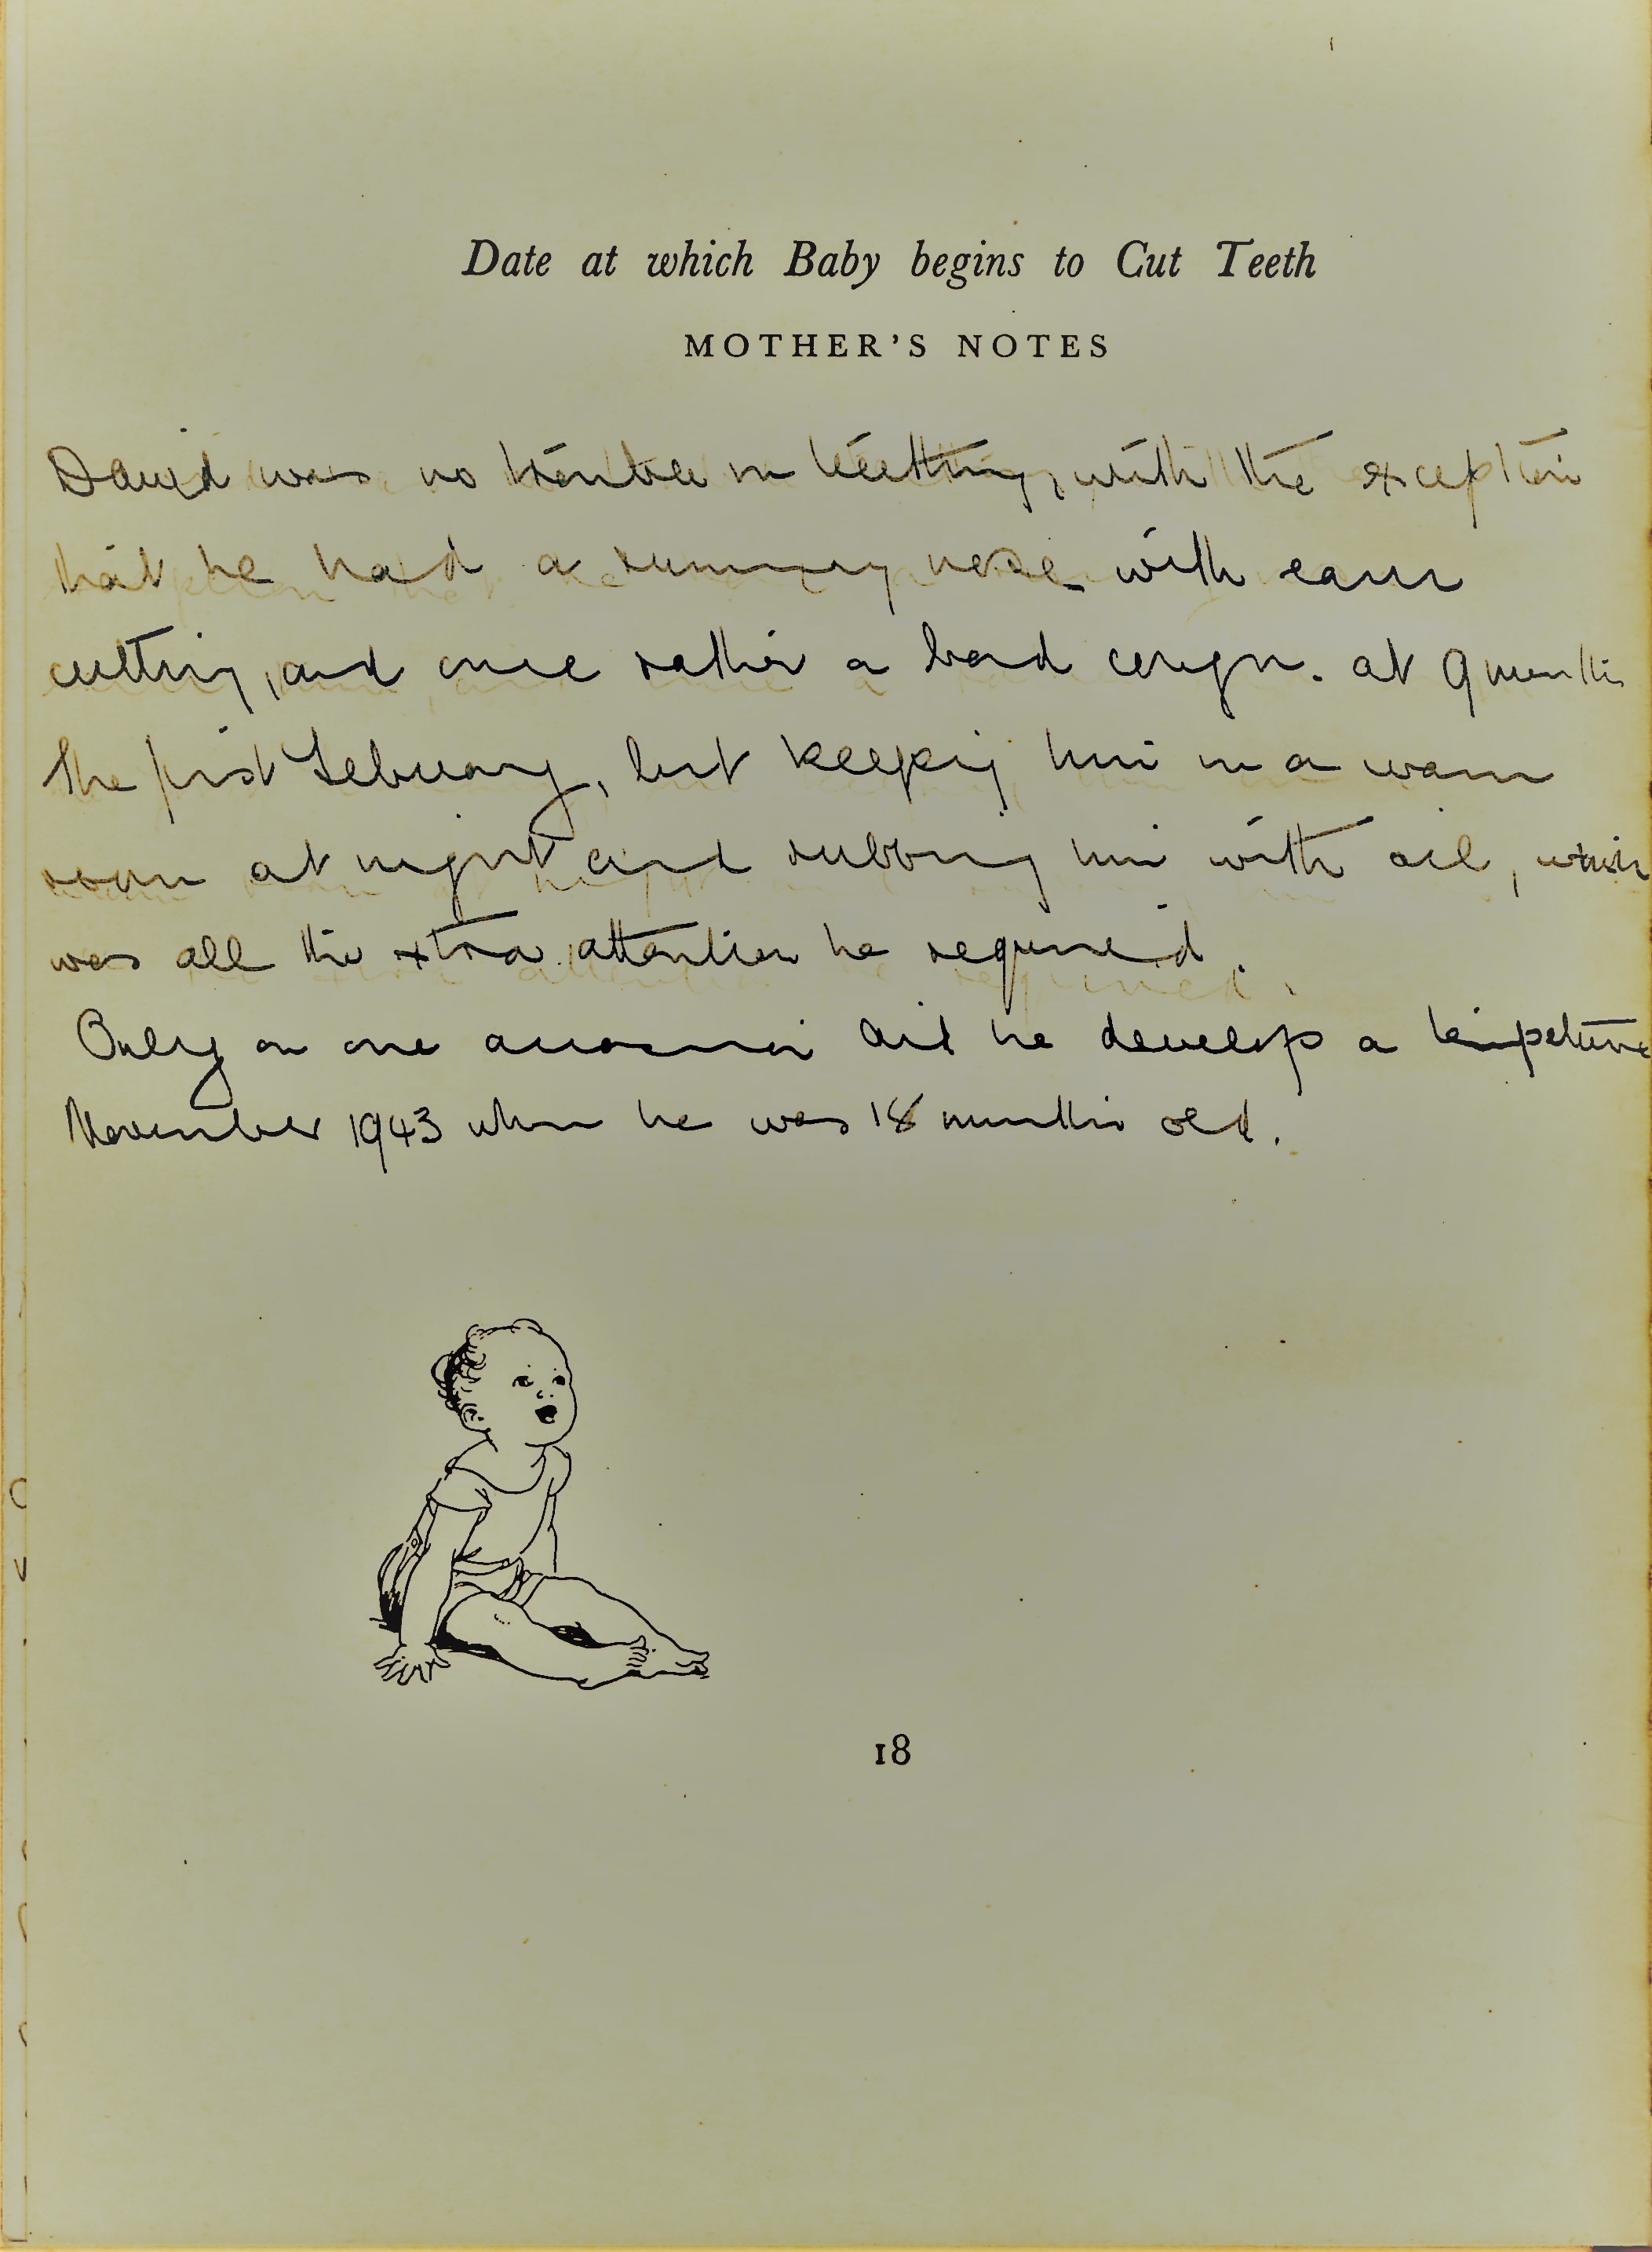 Date at which Baby begins to Cut Teeth
MOTHER'S NOTES
David was no trouble in teething, with the exception
that he had a runny nose with each
cutting, and once rather a bad cough. at 9 months
the first Febuary, but keeping him in a warm
room at night and rubbing him with oil, which
was all the xtra attention he required.
Only on one occasion did he develop a
November 1943 when he was 18 months old.
18